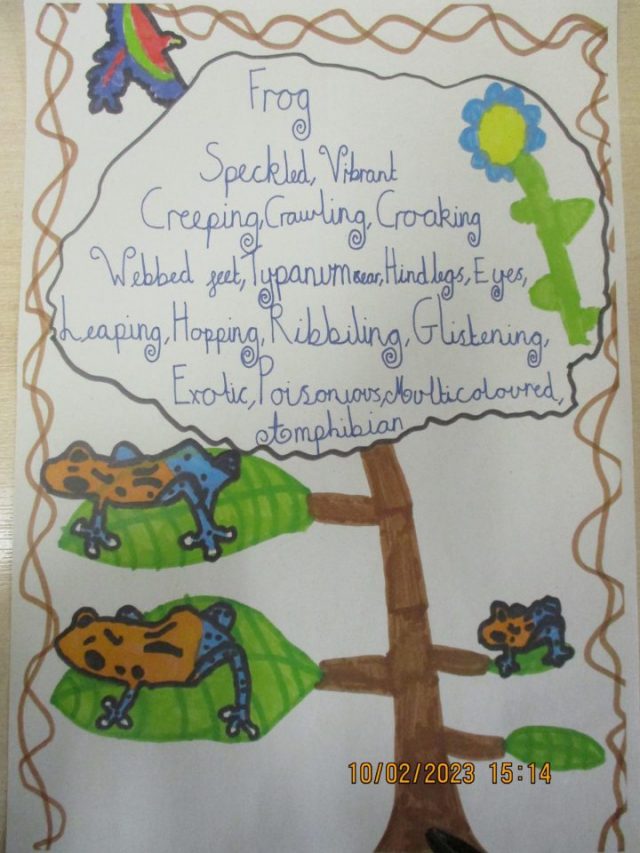 Frog
Speckled, Vibrant
Creeping, Crawling, Croaking
Webbed feet, Typanum ear, Hindlegs, Eyes,
Leaping, Hopping, Ribbiling, Glistening,
Exotic, Poisonious, Multicoloured,
Amphibian
10/02/2023 15:14